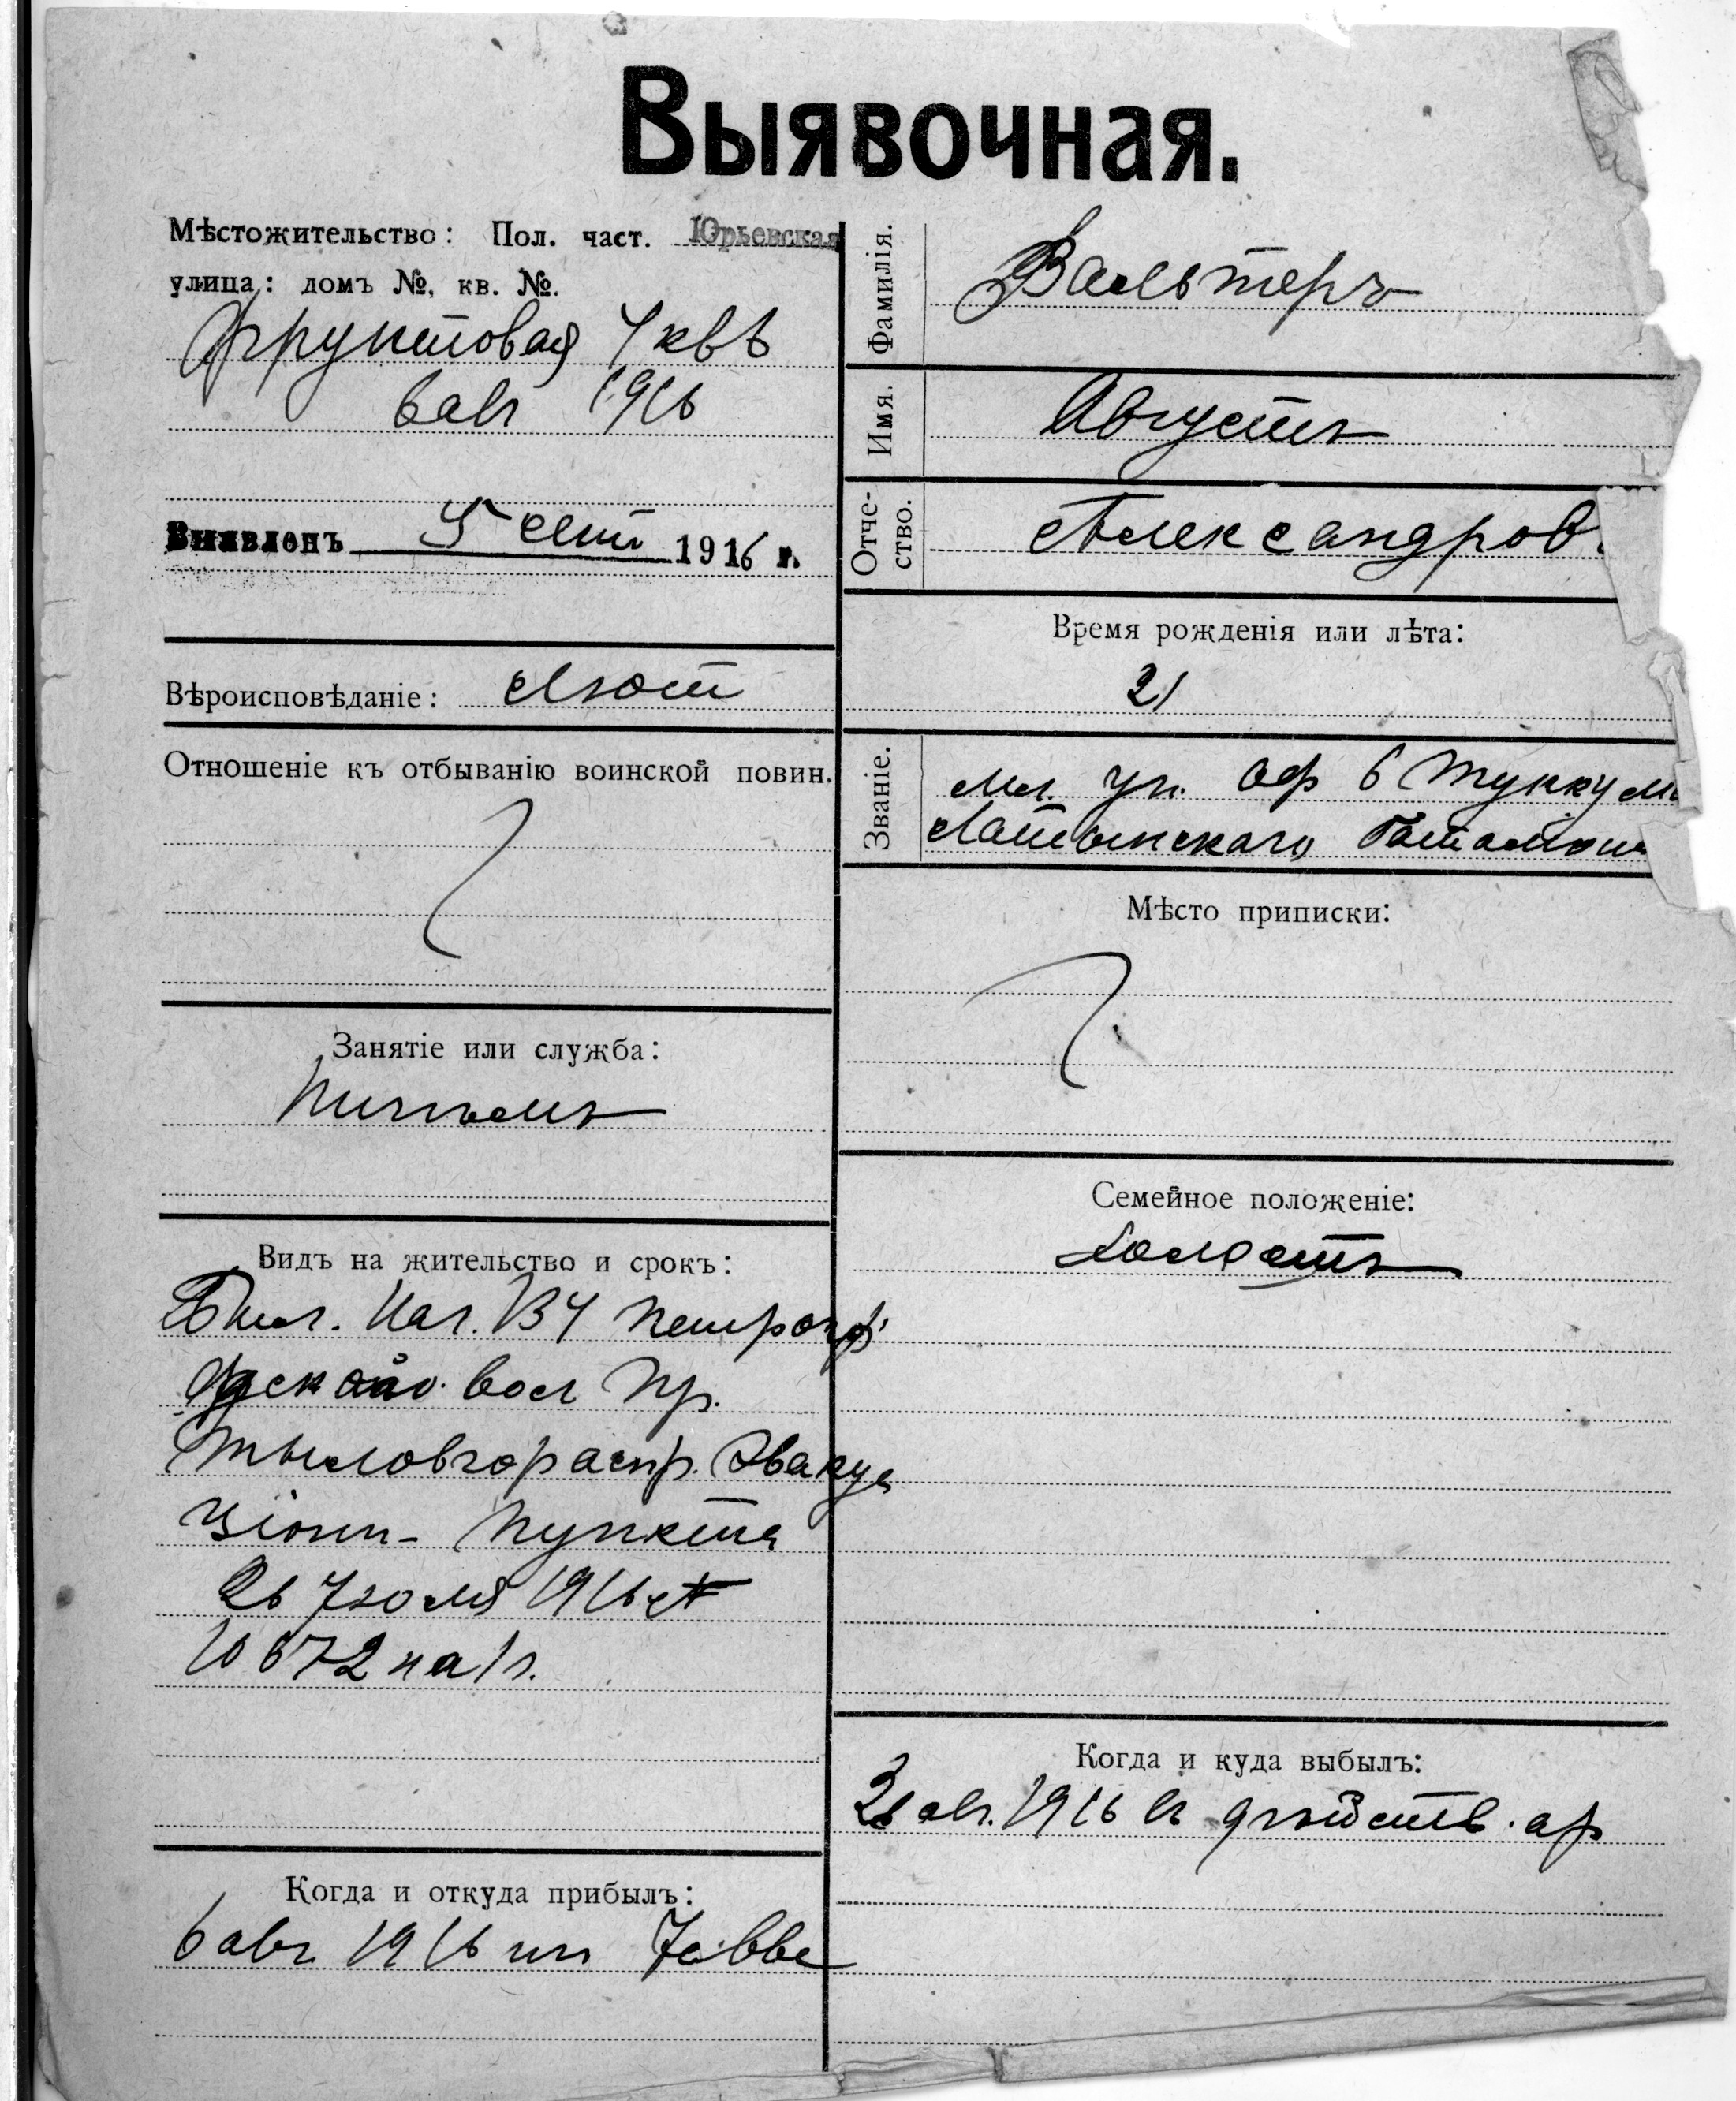 Выявочная.
Мѣстожительство: Пол. част. Юрьевская
улица: домъ №, кв. №.
Фруктовая 4 кв 6
6 авг 1916
Выявленъ 5 сент 1916 г.
Вѣроисповѣданіе: Лют
Отношеніе къ отбыванію воинской повин.
Занятіе или служба:
Видъ на жительство и срокъ:
Бил. Нач. В Ч Петрогр
адской вол Пр.
Тыловгораспр. Эвакуа
ціонн- Пункта
26 Іюля 1916 №
10672 на 1 г.
Когда и откуда прибылъ:
6 авг 1916 изъ
Фамилія. Вальтеръ
Имя. Августъ
Отче-
ство. Александров.
Время рожденія или лѣта:
21
Званіе. Мл. Ун. Оф 6 Туккум
Латышскаго баталіона
Мѣсто приписки:
Семейное положеніе:
Холостъ
Когда и куда выбылъ:
авг. 1916 въ дѣйств. ар